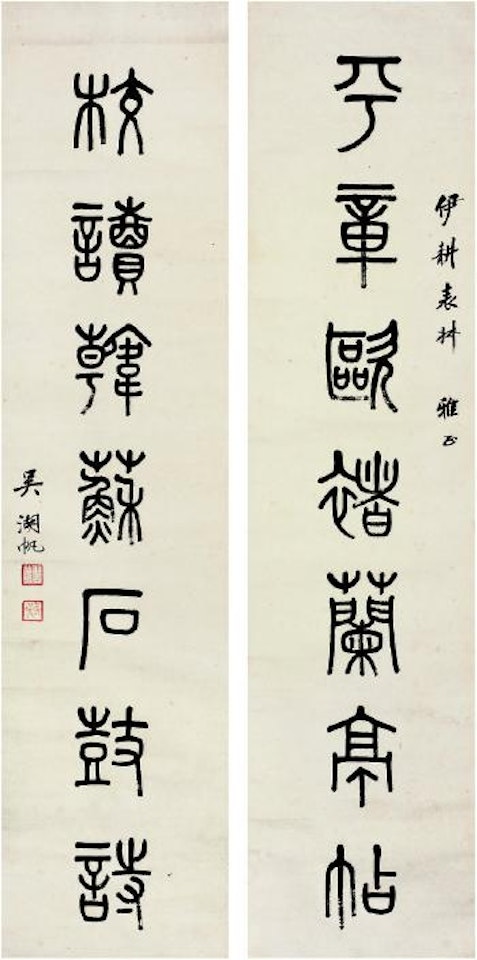 伊耕表叔 雅正
平章歐褚蘭亭帖
校讀韓蘇石鼓詩
吳湖帆